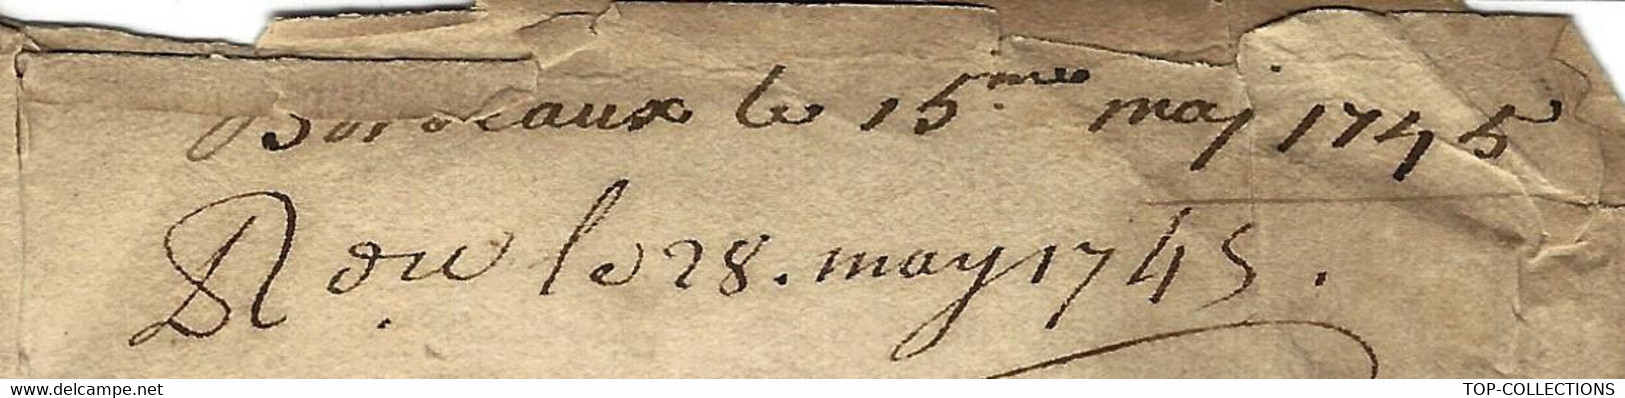 Bordeaux le 15.me maj 1745
R du le 28. may 1745.
www.delcampe.net
TOP-COLLECTIONS